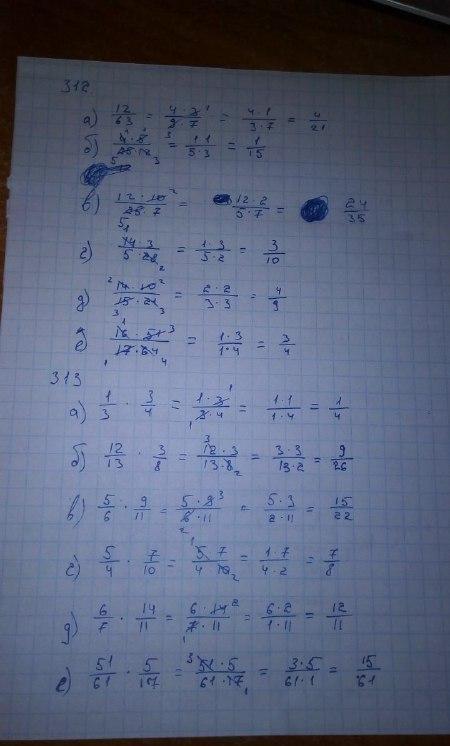 312
а) 12/63 = 4·3/9·7 = 4·1/3·7 = 4/21
б) 4·5/25·12 = 1·1/5·3 = 1/15
в) 12·10/25·7 = 12·2/5·7 = 24/35
г) 14·3/5·28 = 1·3/5·2 = 3/10
д) 14·10/15·21 = 2·2/3·3 = 4/9
е) 16·51/17·64 = 1·3/1·4 = 3/4
313
а) 1/3 · 3/4 = 1·3/3·4 = 1·1/1·4 = 1/4
б) 12/13 · 3/8 = 12·3/13·8 = 3·3/13·2 = 9/26
в) 5/6 · 9/11 = 5·9/6·11 = 5·3/2·11 = 15/22
г) 5/4 · 7/10 = 5 7/4 10 = 1·7/4·2 = 7/8
д) 6/7 · 14/11 = 6·14/7·11 = 6·2/1·11 = 12/11
е) 51/61 · 5/17 = 51·5/61·17 = 3·5/61·1 = 15/61